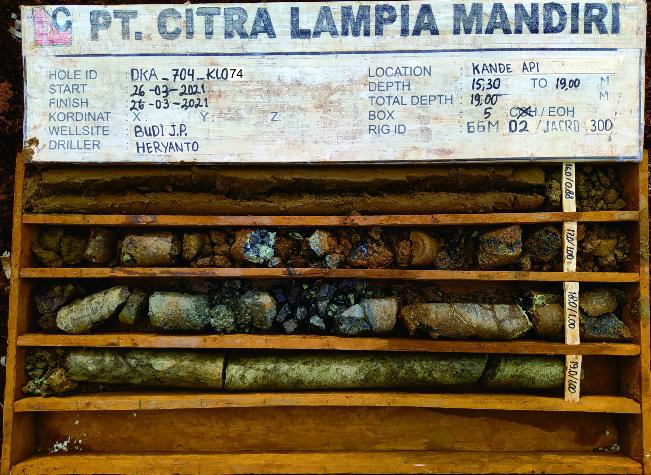 PT. CITRA LAMPIA MANDIRI
HOLE ID : DKA_704_KL074
START : 26-03-2021
FINISH : 26-03-2021
KORDINAT X : Y: Z:
WELLSITE : BUDI J.P.
DRILLER : HERYANTO
LOCATION : KANDE API
DEPTH : 15,30 TO 19,00 M
TOTAL DEPTH : 19,00 M
BOX : 5 / EOH
RIG ID : GGM 02 / JACRO 300
17.0/1.00
18.0/1.00
19.0/1.00